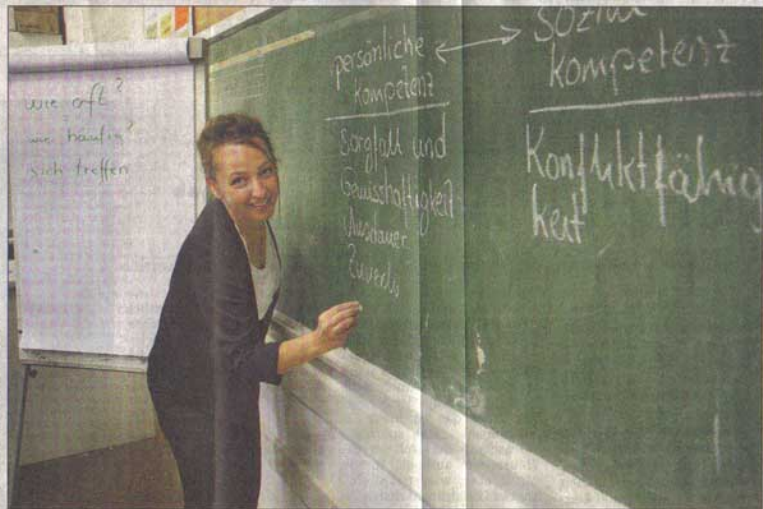 wie oft?
wie häufig?
sich treffen
persönliche
Kompetenz
Sorgfalt und
Gewisshaftigkeit
Zuverlä
Kompetenz
Konfliktfähig
keit